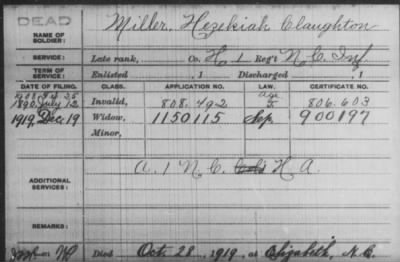 DEAD
NAME OF SOLDIER: Miller, Hezekiah Claughton
SERVICE: Late rank, Co. H, 1 Reg't N.C. Inf.
TERM OF SERVICE: Enlisted , 1 Discharged , 1
DATE OF FILING. CLASS. APPLICATION NO. LAW. CERTIFICATE NO.
1890, July 12 Invalid, 808.492 806.603
1919, Dec. 19 Widow, 1150115 Sep. 900197
Minor,
ADDITIONAL SERVICES: A. 1 N.C. H.A.
REMARKS:
Died Oct. 28, 1919, at Elizabeth, N.C.